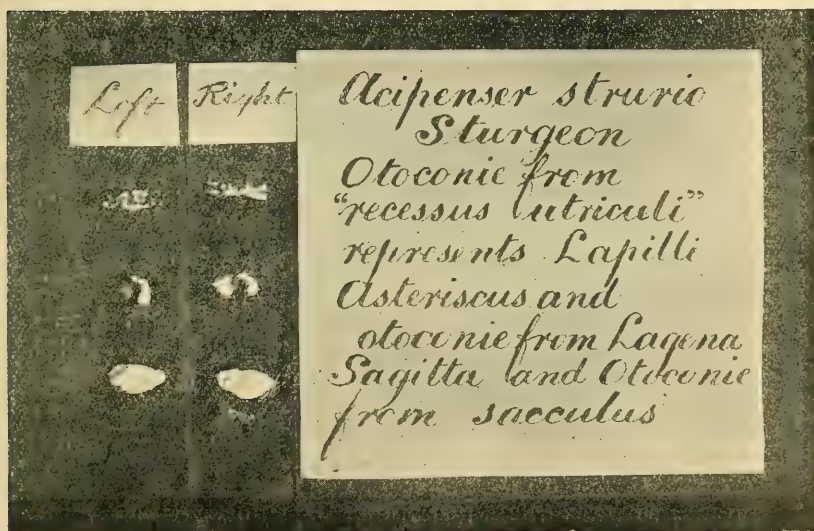 Left
Right
Acipenser strurio
Sturgeon
Otoconie from
"recessus utriculi"
represents Lapilli
Asteriscus and
otoconie from Lagena
Sagitta and Otoconie
from sacculus